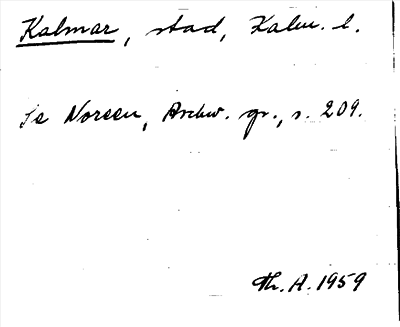 Kalmar, stad, Kalm. l.
Se Noreen, Aschw. gr., s. 209.
Th. A. 1959